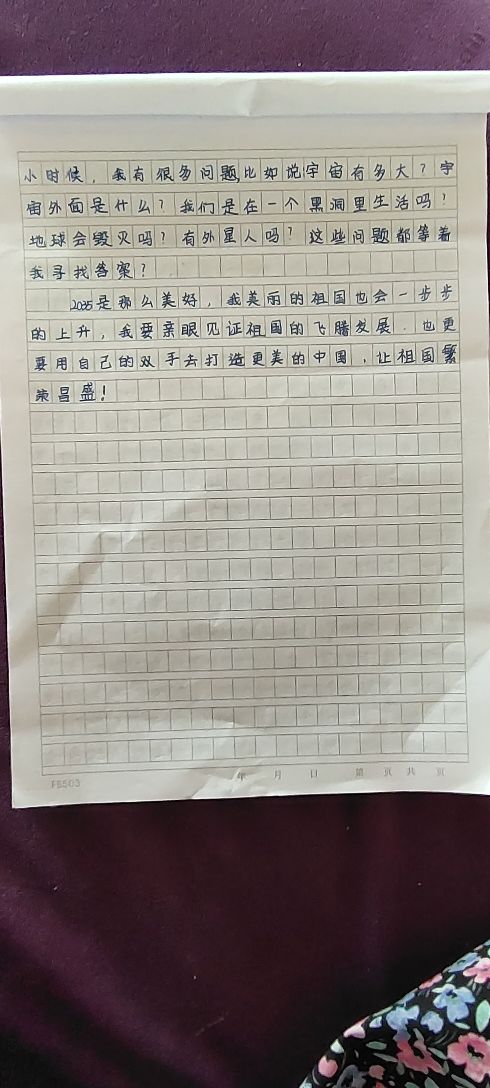 小时候，我有很多问题，比如说宇宙有多大？宇
宙外面是什么？我们是在一个黑洞里生活吗？
地球会毁灭吗？有外星人吗？这些问题都等着
我寻找答案？
2035是那么美好，我美丽的祖国也会一步步
的上升，我要亲眼见证祖国的飞腾发展．也更
要用自己的双手去打造更美的中国，让祖国繁
荣昌盛！
FB503 年 月 日 第 页 共 页